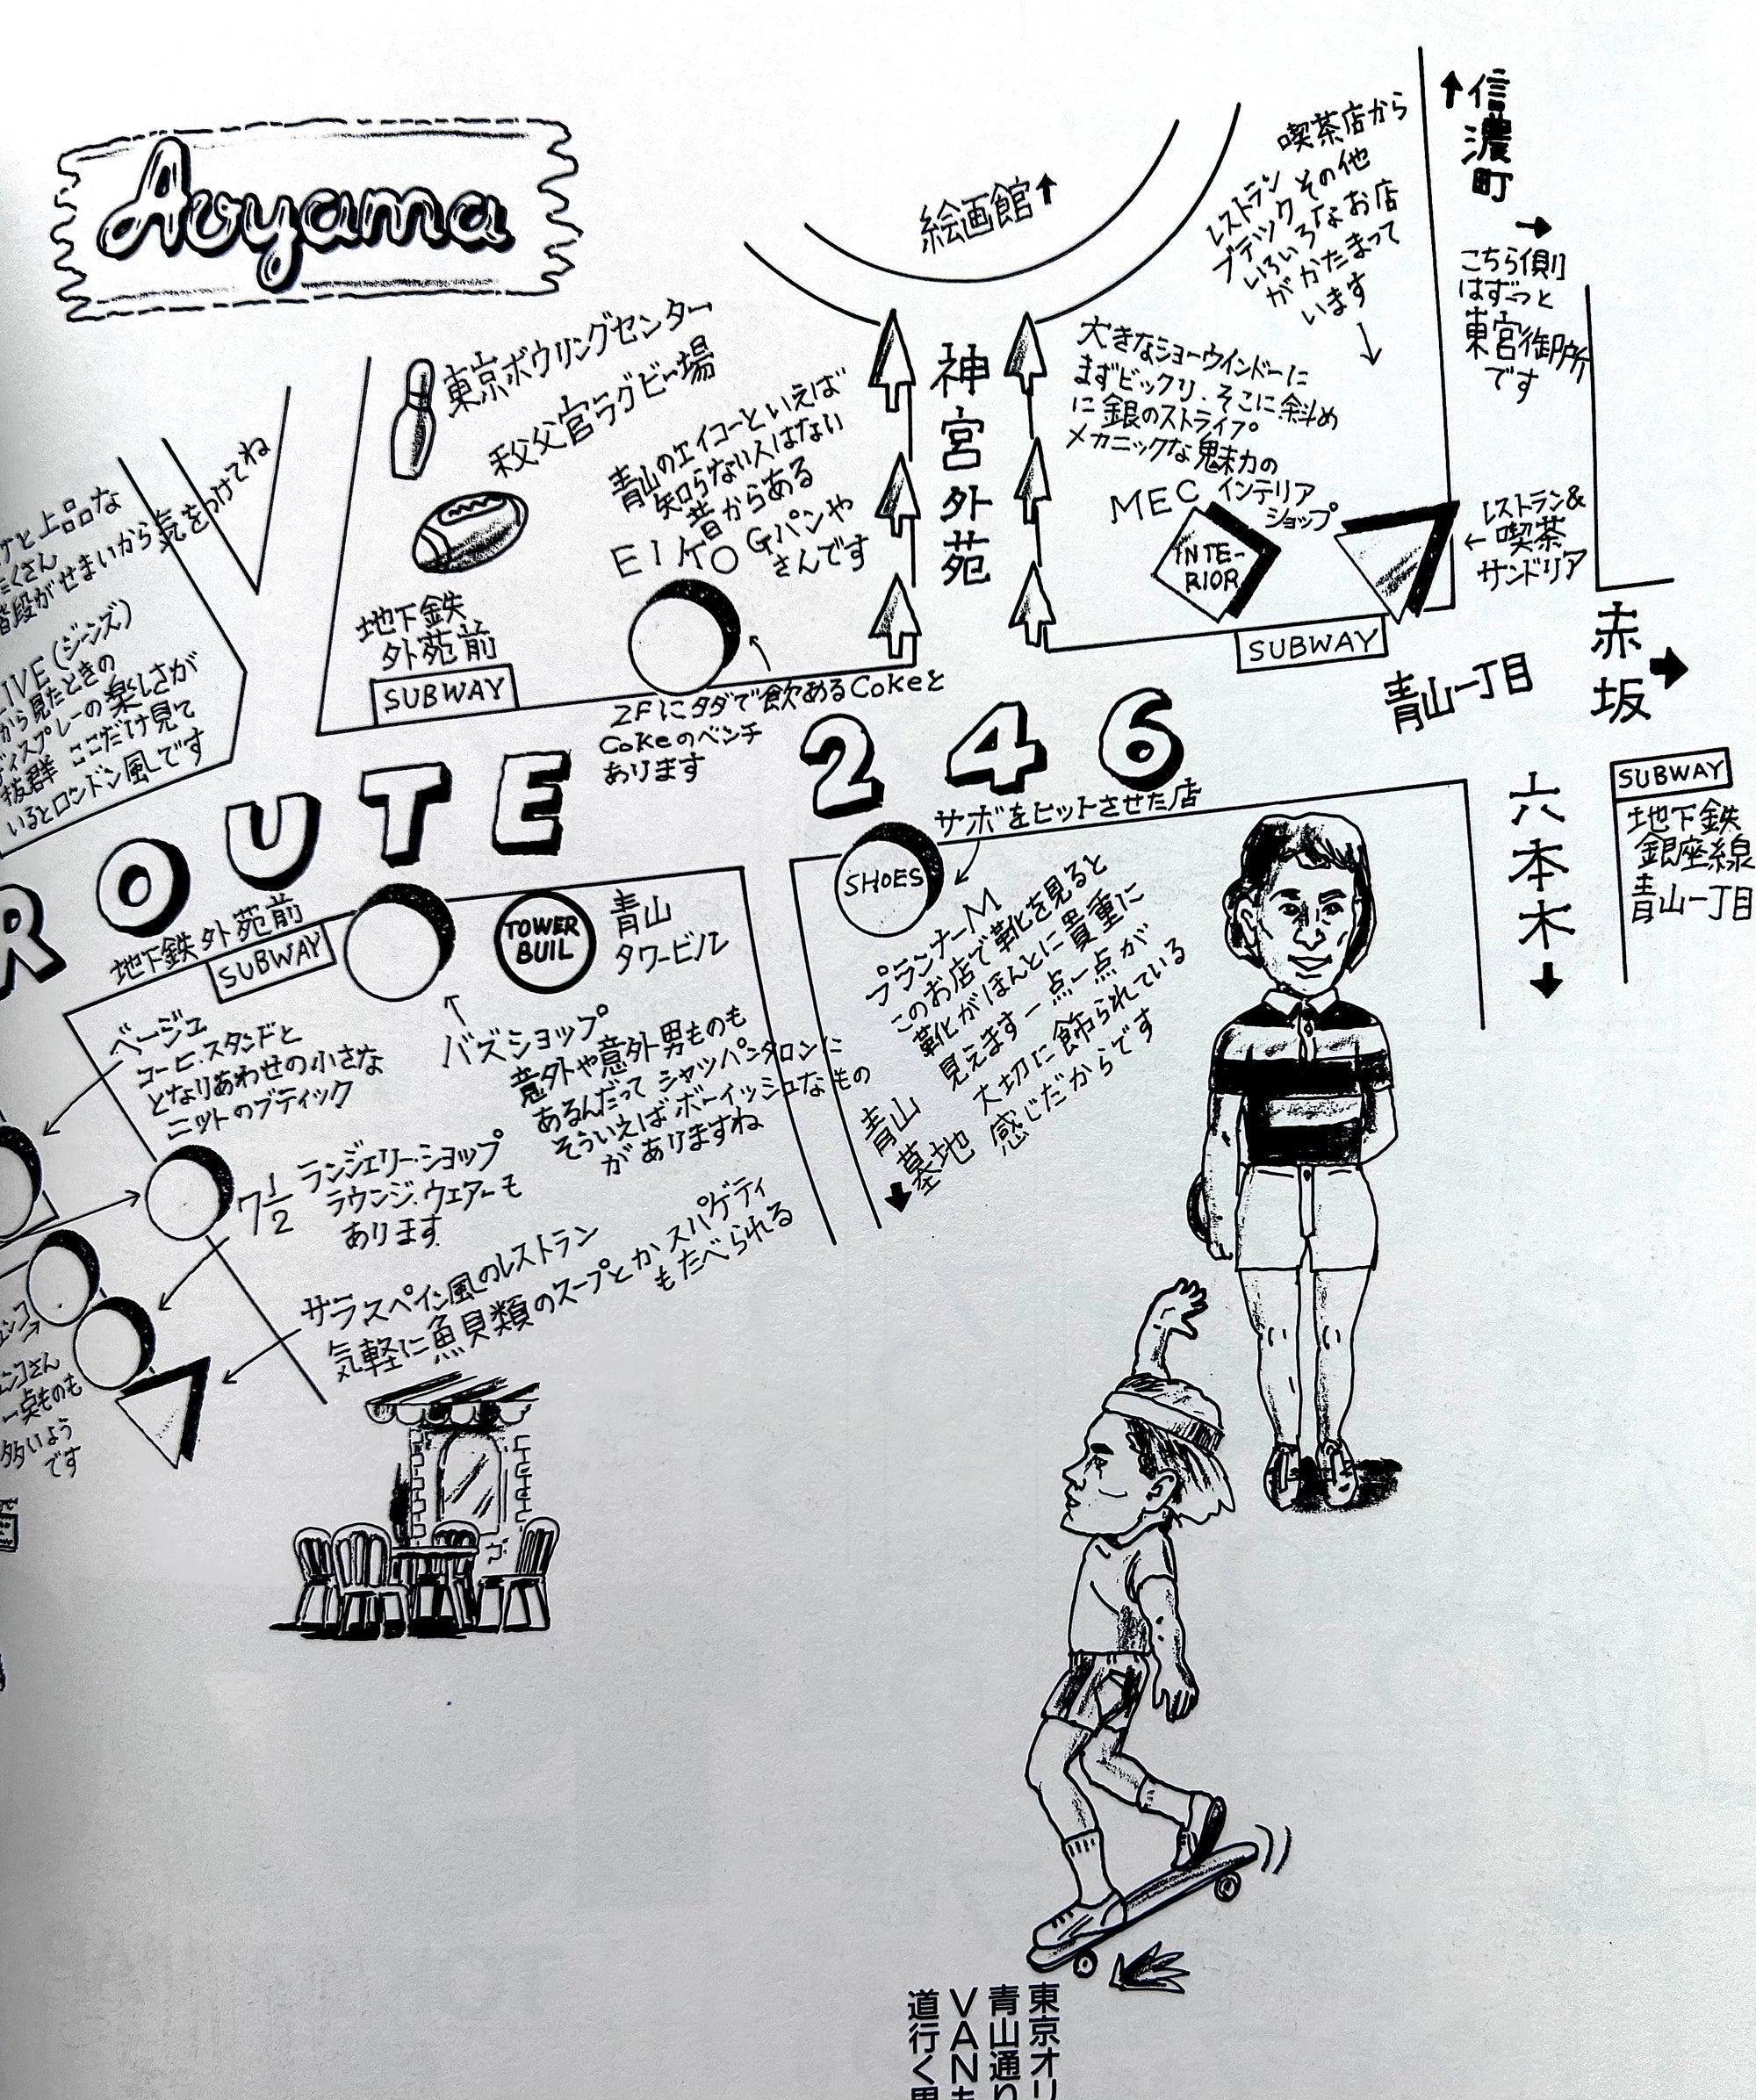 Aoyama
絵画館↑
喫茶店から
レストラン その他
ブティック
いろいろなお店
がかたまって
います
↑信濃町
→
こちら側
はずーっと
東宮御所
です
東京ボウリングセンター
秩父宮ラグビー場
青山のエイコーといえば
知らない人はない
昔からある
EIKO Gパンや
さんです
神宮外苑
大きなショーウインドーに
まずビックリ.そこに斜め
に銀のストライプ
メカニックな魅力の
MEC インテリア
ショップ
INTE-
RIOR
レストラン&
←喫茶
サンドリア
地下鉄
外苑前
SUBWAY
SUBWAY
青山一丁目
赤坂
➡
2Fにタダで飲めるCokeと
Cokeのベンチ
あります
上品な
階段がせまいから気をつけてね
(ジーンズ)
から見たときの
ディスプレーの楽しさが
抜群 ここだけ見て
いるとロンドン風です
ROUTE 246
サボをヒットさせた店
SHOES
プランナーM
このお店で靴を見ると
靴がほんとに貴重に
見えます一点一点が
大切に飾られている
感じだからです
青山
墓地
六本木
SUBWAY
地下鉄
銀座線
青山一丁目
地下鉄外苑前
SUBWAY
TOWER
BUIL
青山
タワービル
ベージュ
コーヒ.スタンドと
となりあわせの小さな
ニットのブティック
バズショップ
意外や意外男ものも
あるんだって シャツパンタロンに
そういえばボーイッシュなもの
がありますね
7 1/2 ランジェリー・ショップ
ラウンジ.ウェアーも
あります
サラスペイン風のレストラン
気軽に魚貝類のスープとかスパゲティ
もたべられる
一点ものも
多いよう
です
東京オリ
青山通り
VANも
道行く男